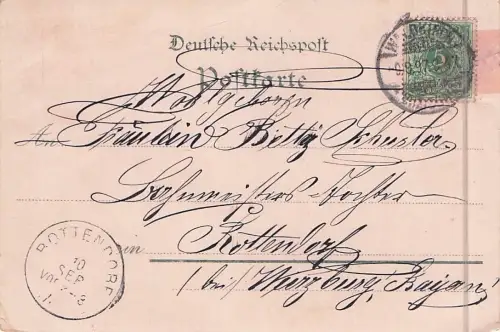 Deutsche Reichspost
Postkarte
Wohlgeboren
An Fräulein Betty Schuster
Bahnmeisters-Tochter
in Rottendorf
(bei Würzburg, Bayern)
ROTTENDORF
10
SEP
VOR 7-8
5